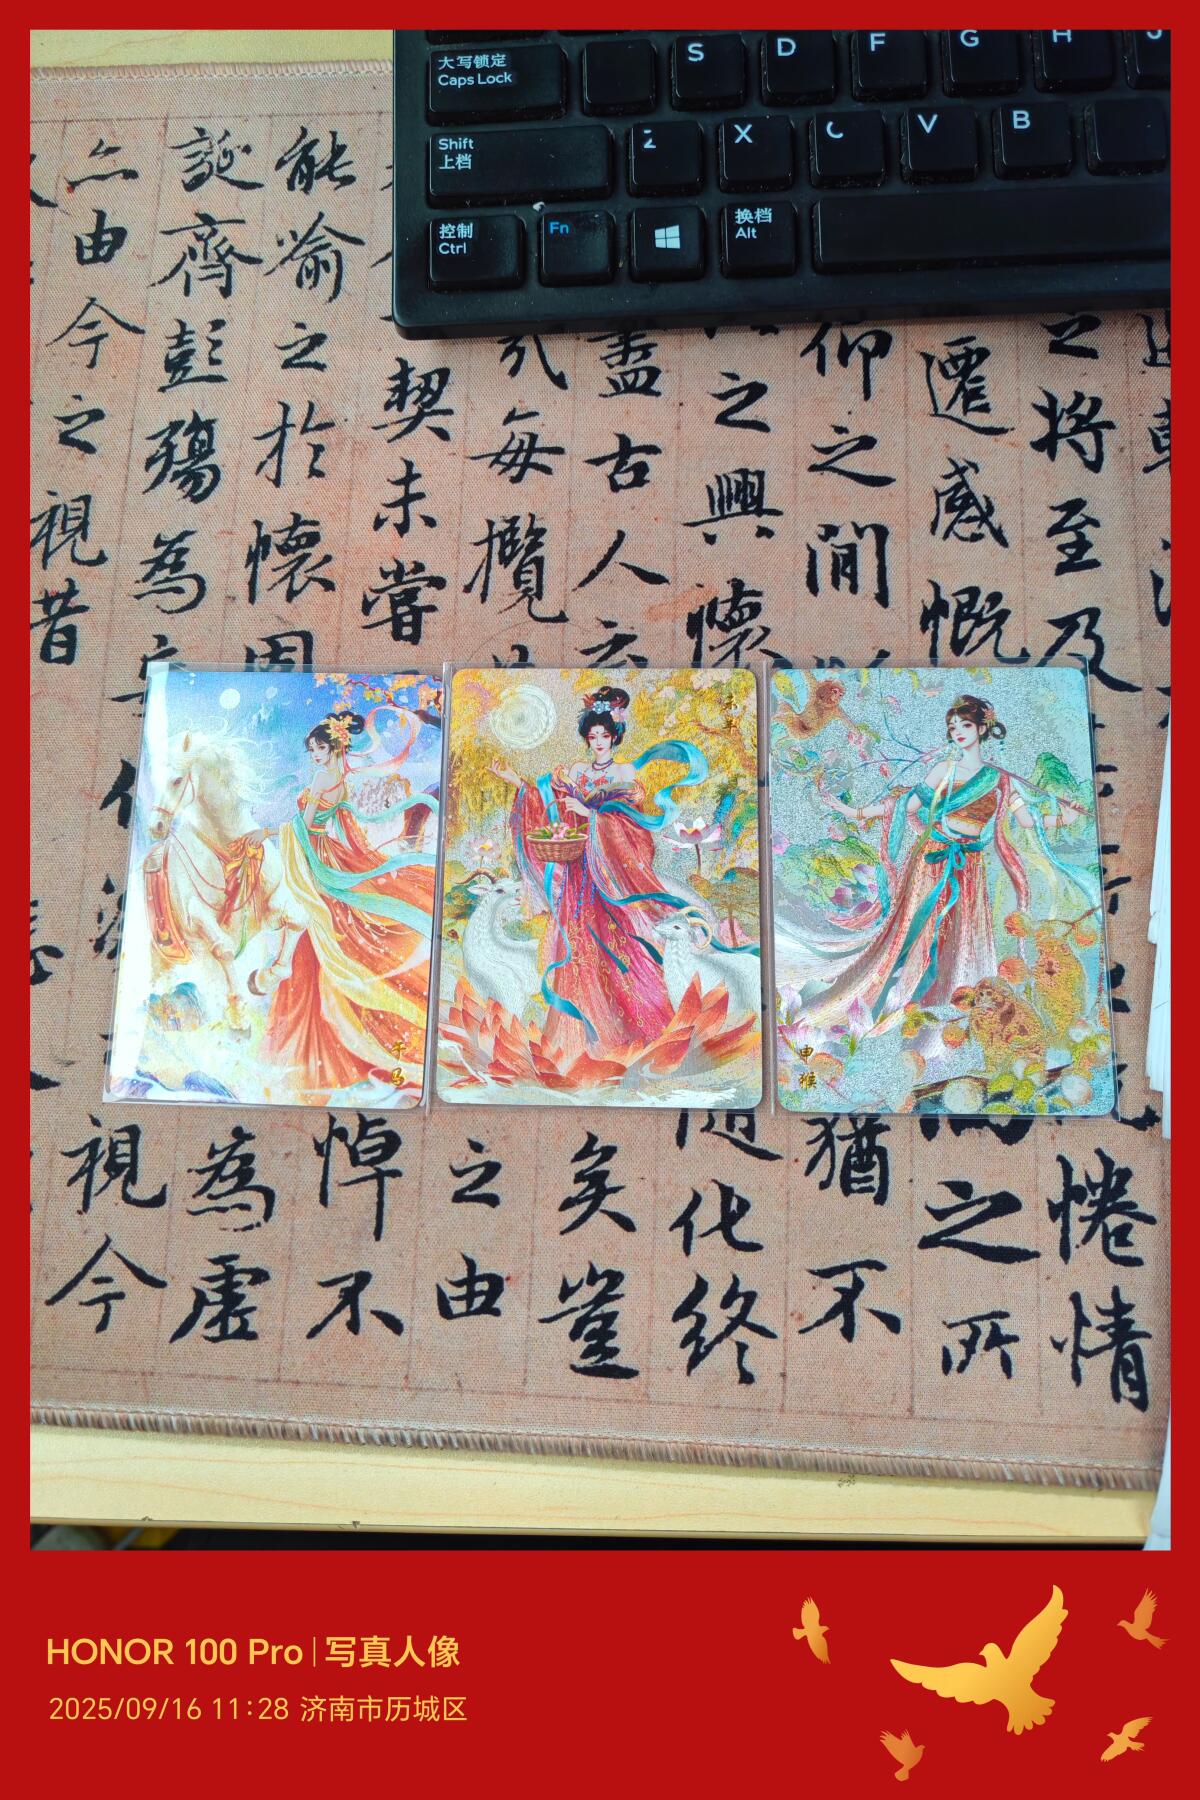 大写锁定
Caps Lock
S
D
F
G
H
J
Shift
上档
Z
X
C
V
B
控制
Ctrl
Fn
换档
Alt
之將至及
惓情
遷感慨
之所
仰之閒
猶不
之興懷
隨化終
盡古人云
矣豈
每攬
之由
契未嘗
悼不
能喻之於懷固
為虛
誕齊彭殤為妄作
視今
亦由今之視昔
午马
未羊
申猴
HONOR 100 Pro|写真人像
2025/09/16 11:28 济南市历城区